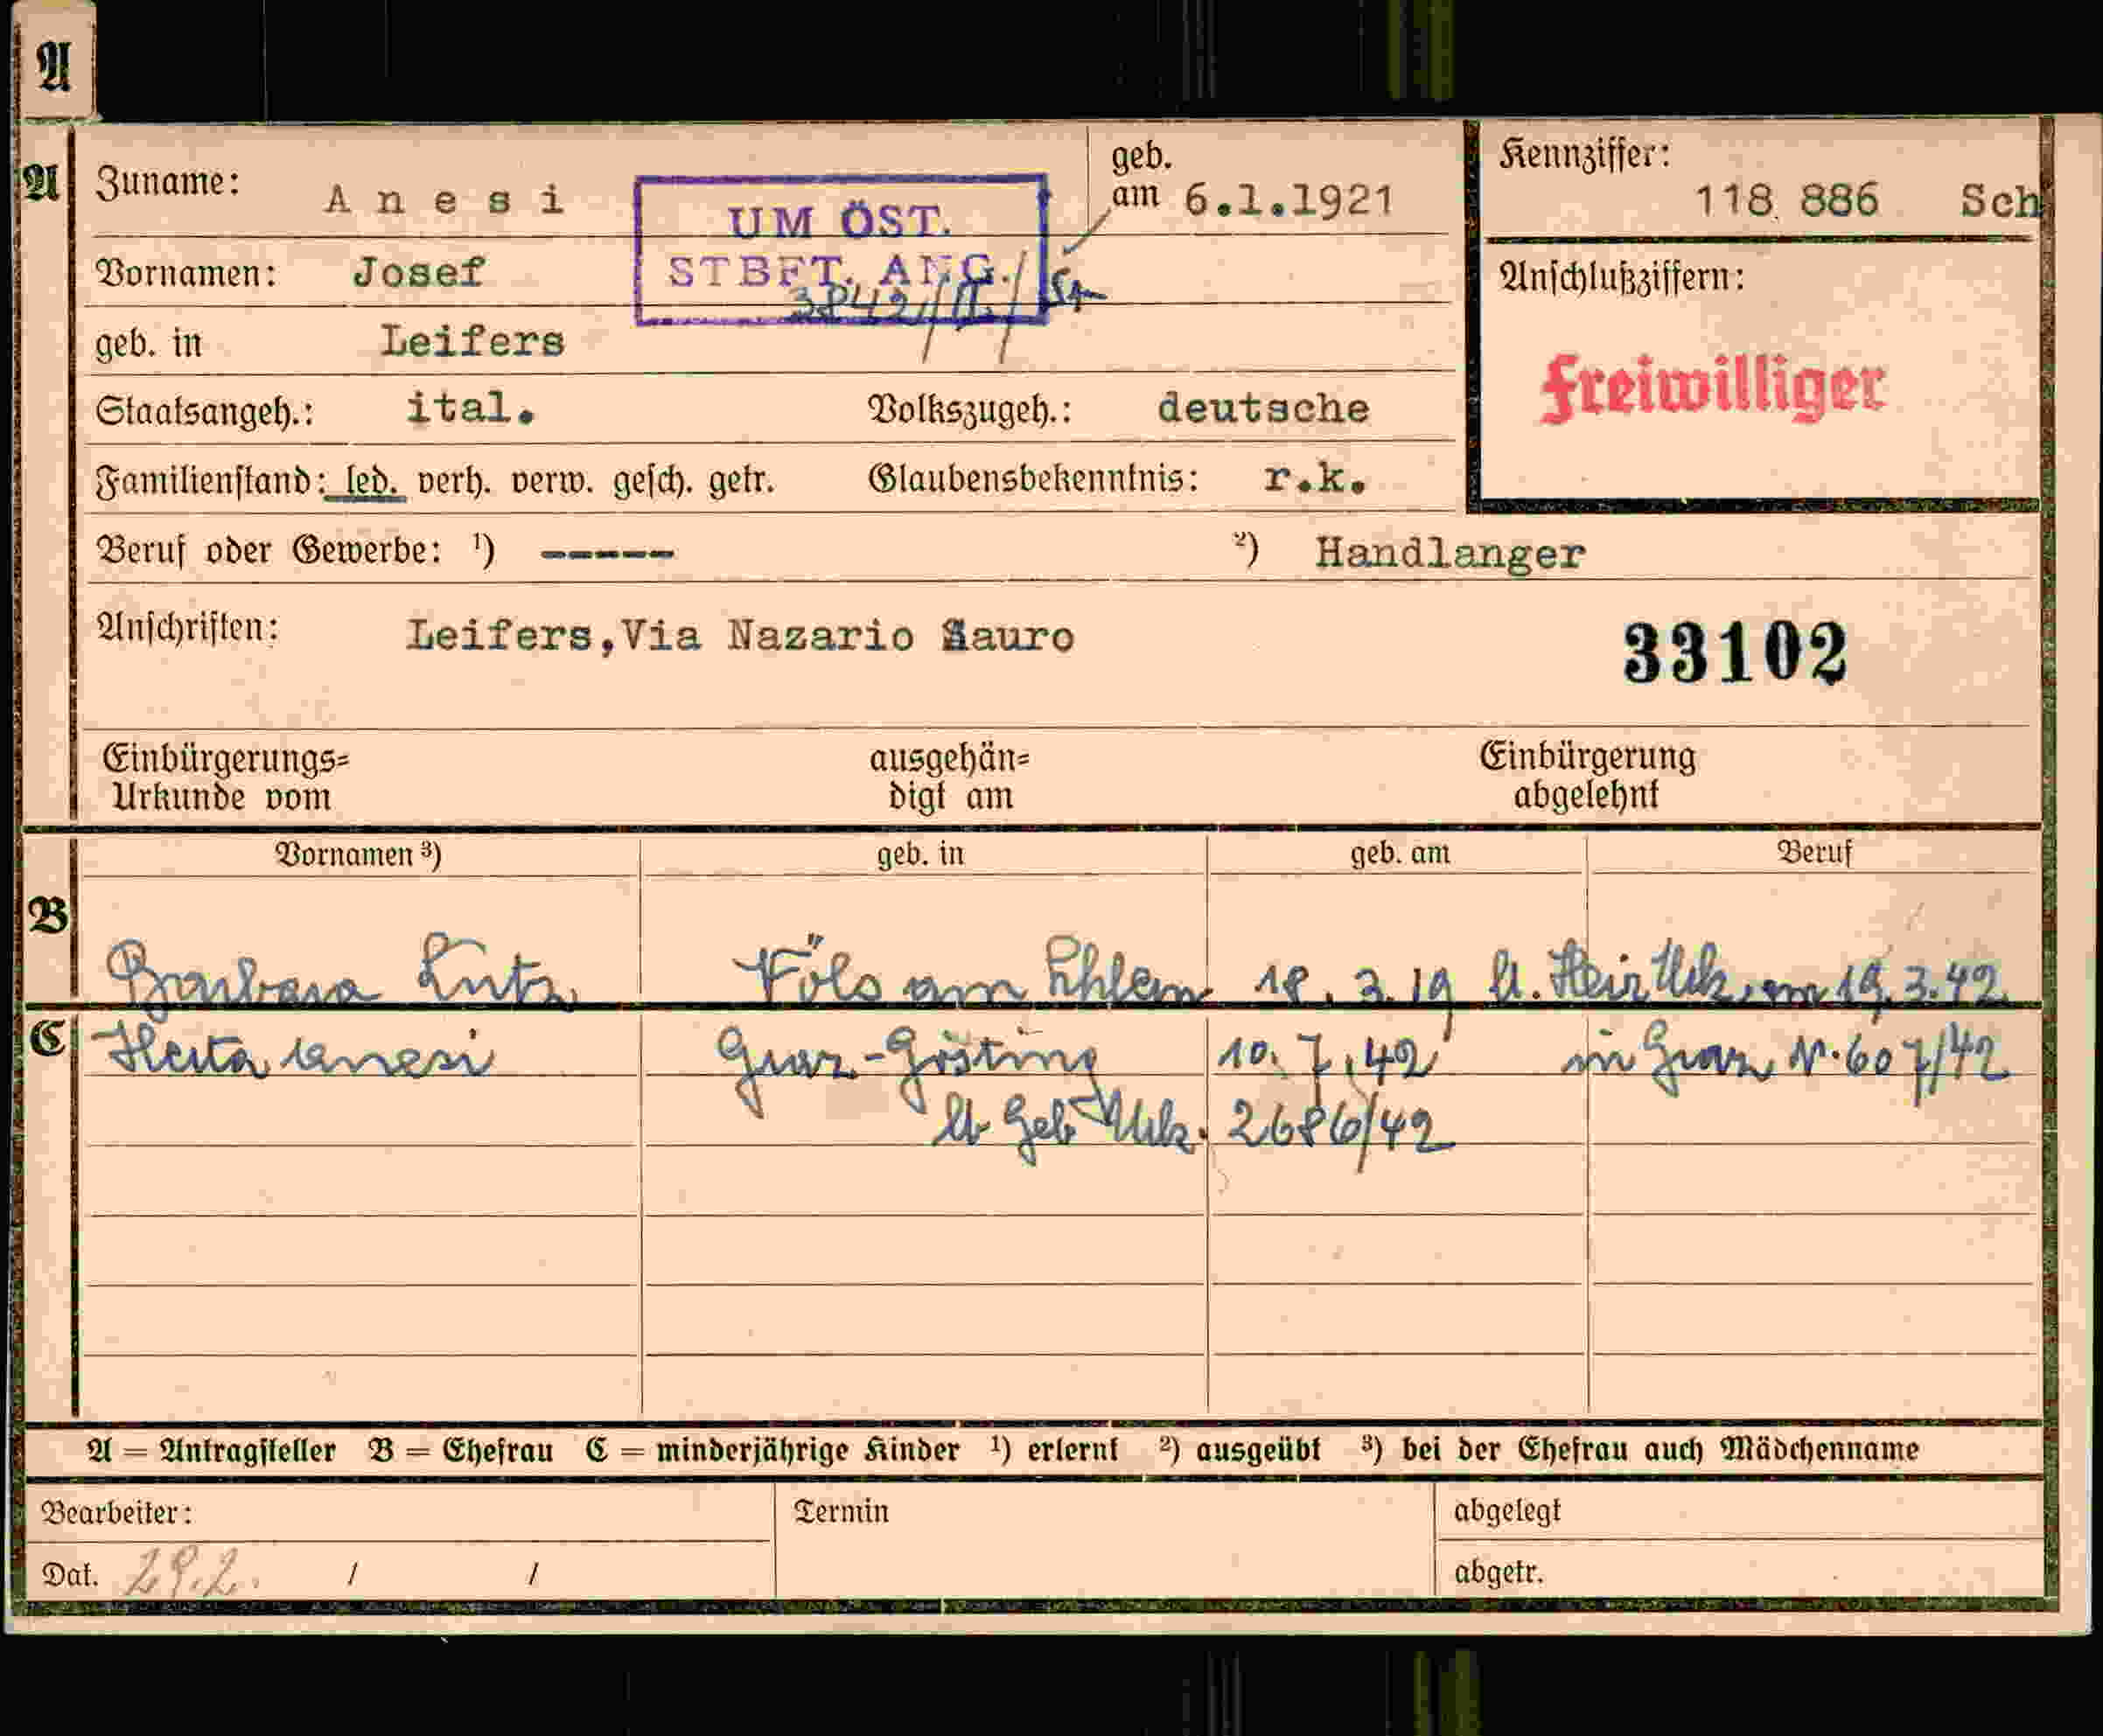 A
A
Zuname: Anesi
geb. am 6.1.1921
Kennziffer: 118 886 Sch
UM ÖST.
STBFT. ANG.
3842/II/
Vornamen: Josef
Anschlußziffern:
Freiwilliger
geb. in Leifers
Staatsangeh.: ital. Volkszugeh.: deutsche
Familienstand: led. verh. verw. gesch. getr. Glaubensbekenntnis: r.k.
Beruf oder Gewerbe: ¹) ----- ²) Handlanger
Anschriften: Leifers,Via Nazario Sauro
33102
Einbürgerungs= Urkunde vom
ausgehän= digt am
Einbürgerung abgelehnt
Vornamen ³) geb. in geb. am Beruf
B
Barbara Lutz Völs am Schlern 18. 3. 19 lt. Heir Urk. am 19. 3. 42
C
Herta Anesi Graz-Gösting 10. 7. 42 in Graz N. 607/42
lt Geb Urk. 2686/42
A = Antragsteller B = Ehefrau C = minderjährige Kinder ¹) erlernt ²) ausgeübt ³) bei der Ehefrau auch Mädchenname
Bearbeiter: Termin abgelegt
Dat. 29.2. / / abgetr.